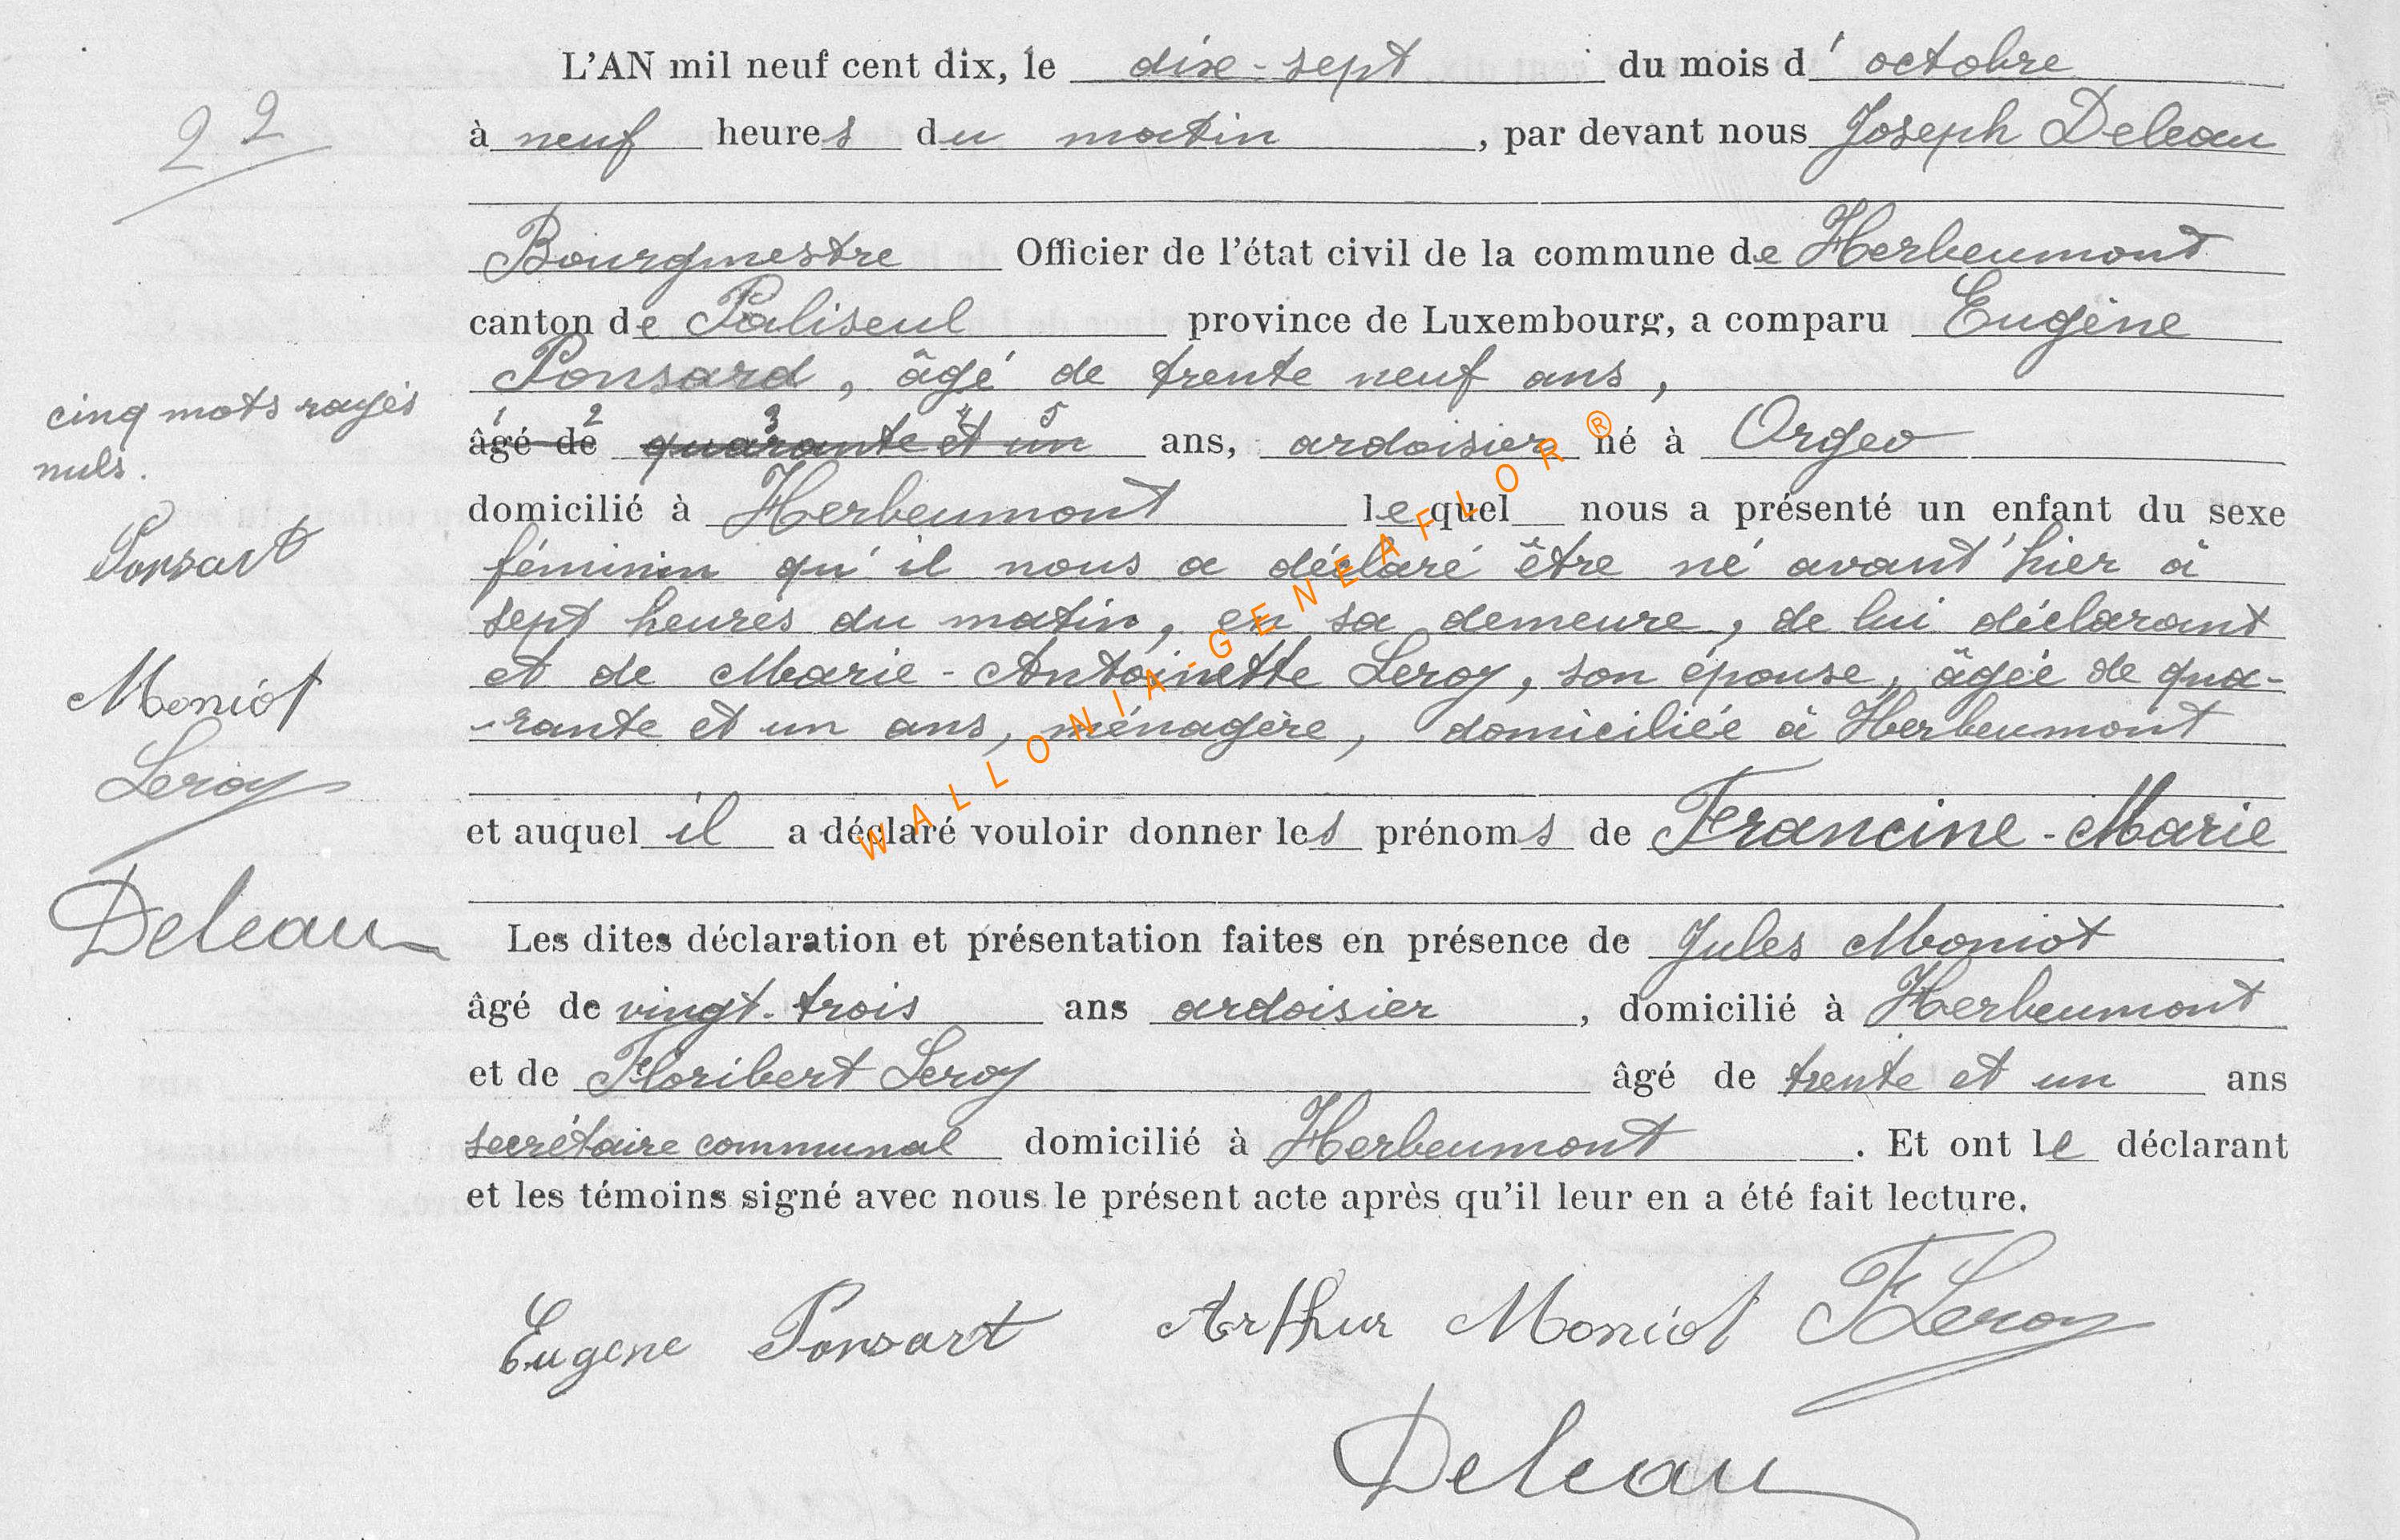 L'AN mil neuf cent dix, le dix-sept du mois d'octobre
22
à neuf heures du matin, par devant nous Joseph Deleau
Bourgmestre Officier de l'état civil de la commune de Herbeumont
canton de Paliseul province de Luxembourg, a comparu Eugène
Ponsard, âgé de trente neuf ans,
cinq mots rayés
nuls.
1 2 3 4 5
âgé de quarante et un ans, ardoisier né à Orgeo
domicilié à Herbeumont lequel nous a présenté un enfant du sexe
Ponsart
féminin qu'il nous a déclaré être né avant'hier à
sept heures du matin, en sa demeure, de lui déclarant
et de Marie-Antoinette Leroy, son épouse, âgée de qua-
Moniot
-rante et un ans, ménagère, domiciliée à Herbeumont
Leroy
et auquel il a déclaré vouloir donner les prénoms de Francine-Marie
Deleau
Les dites déclaration et présentation faites en présence de Jules Moniot
âgé de vingt-trois ans ardoisier, domicilié à Herbeumont
et de Floribert Leroy âgé de trente et un ans
secrétaire communal domicilié à Herbeumont. Et ont le déclarant
et les témoins signé avec nous le présent acte après qu'il leur en a été fait lecture.
Eugene Ponsart Arthur Moniot FLeroy
Deleau
WALLONIA-GENEAFLOR®